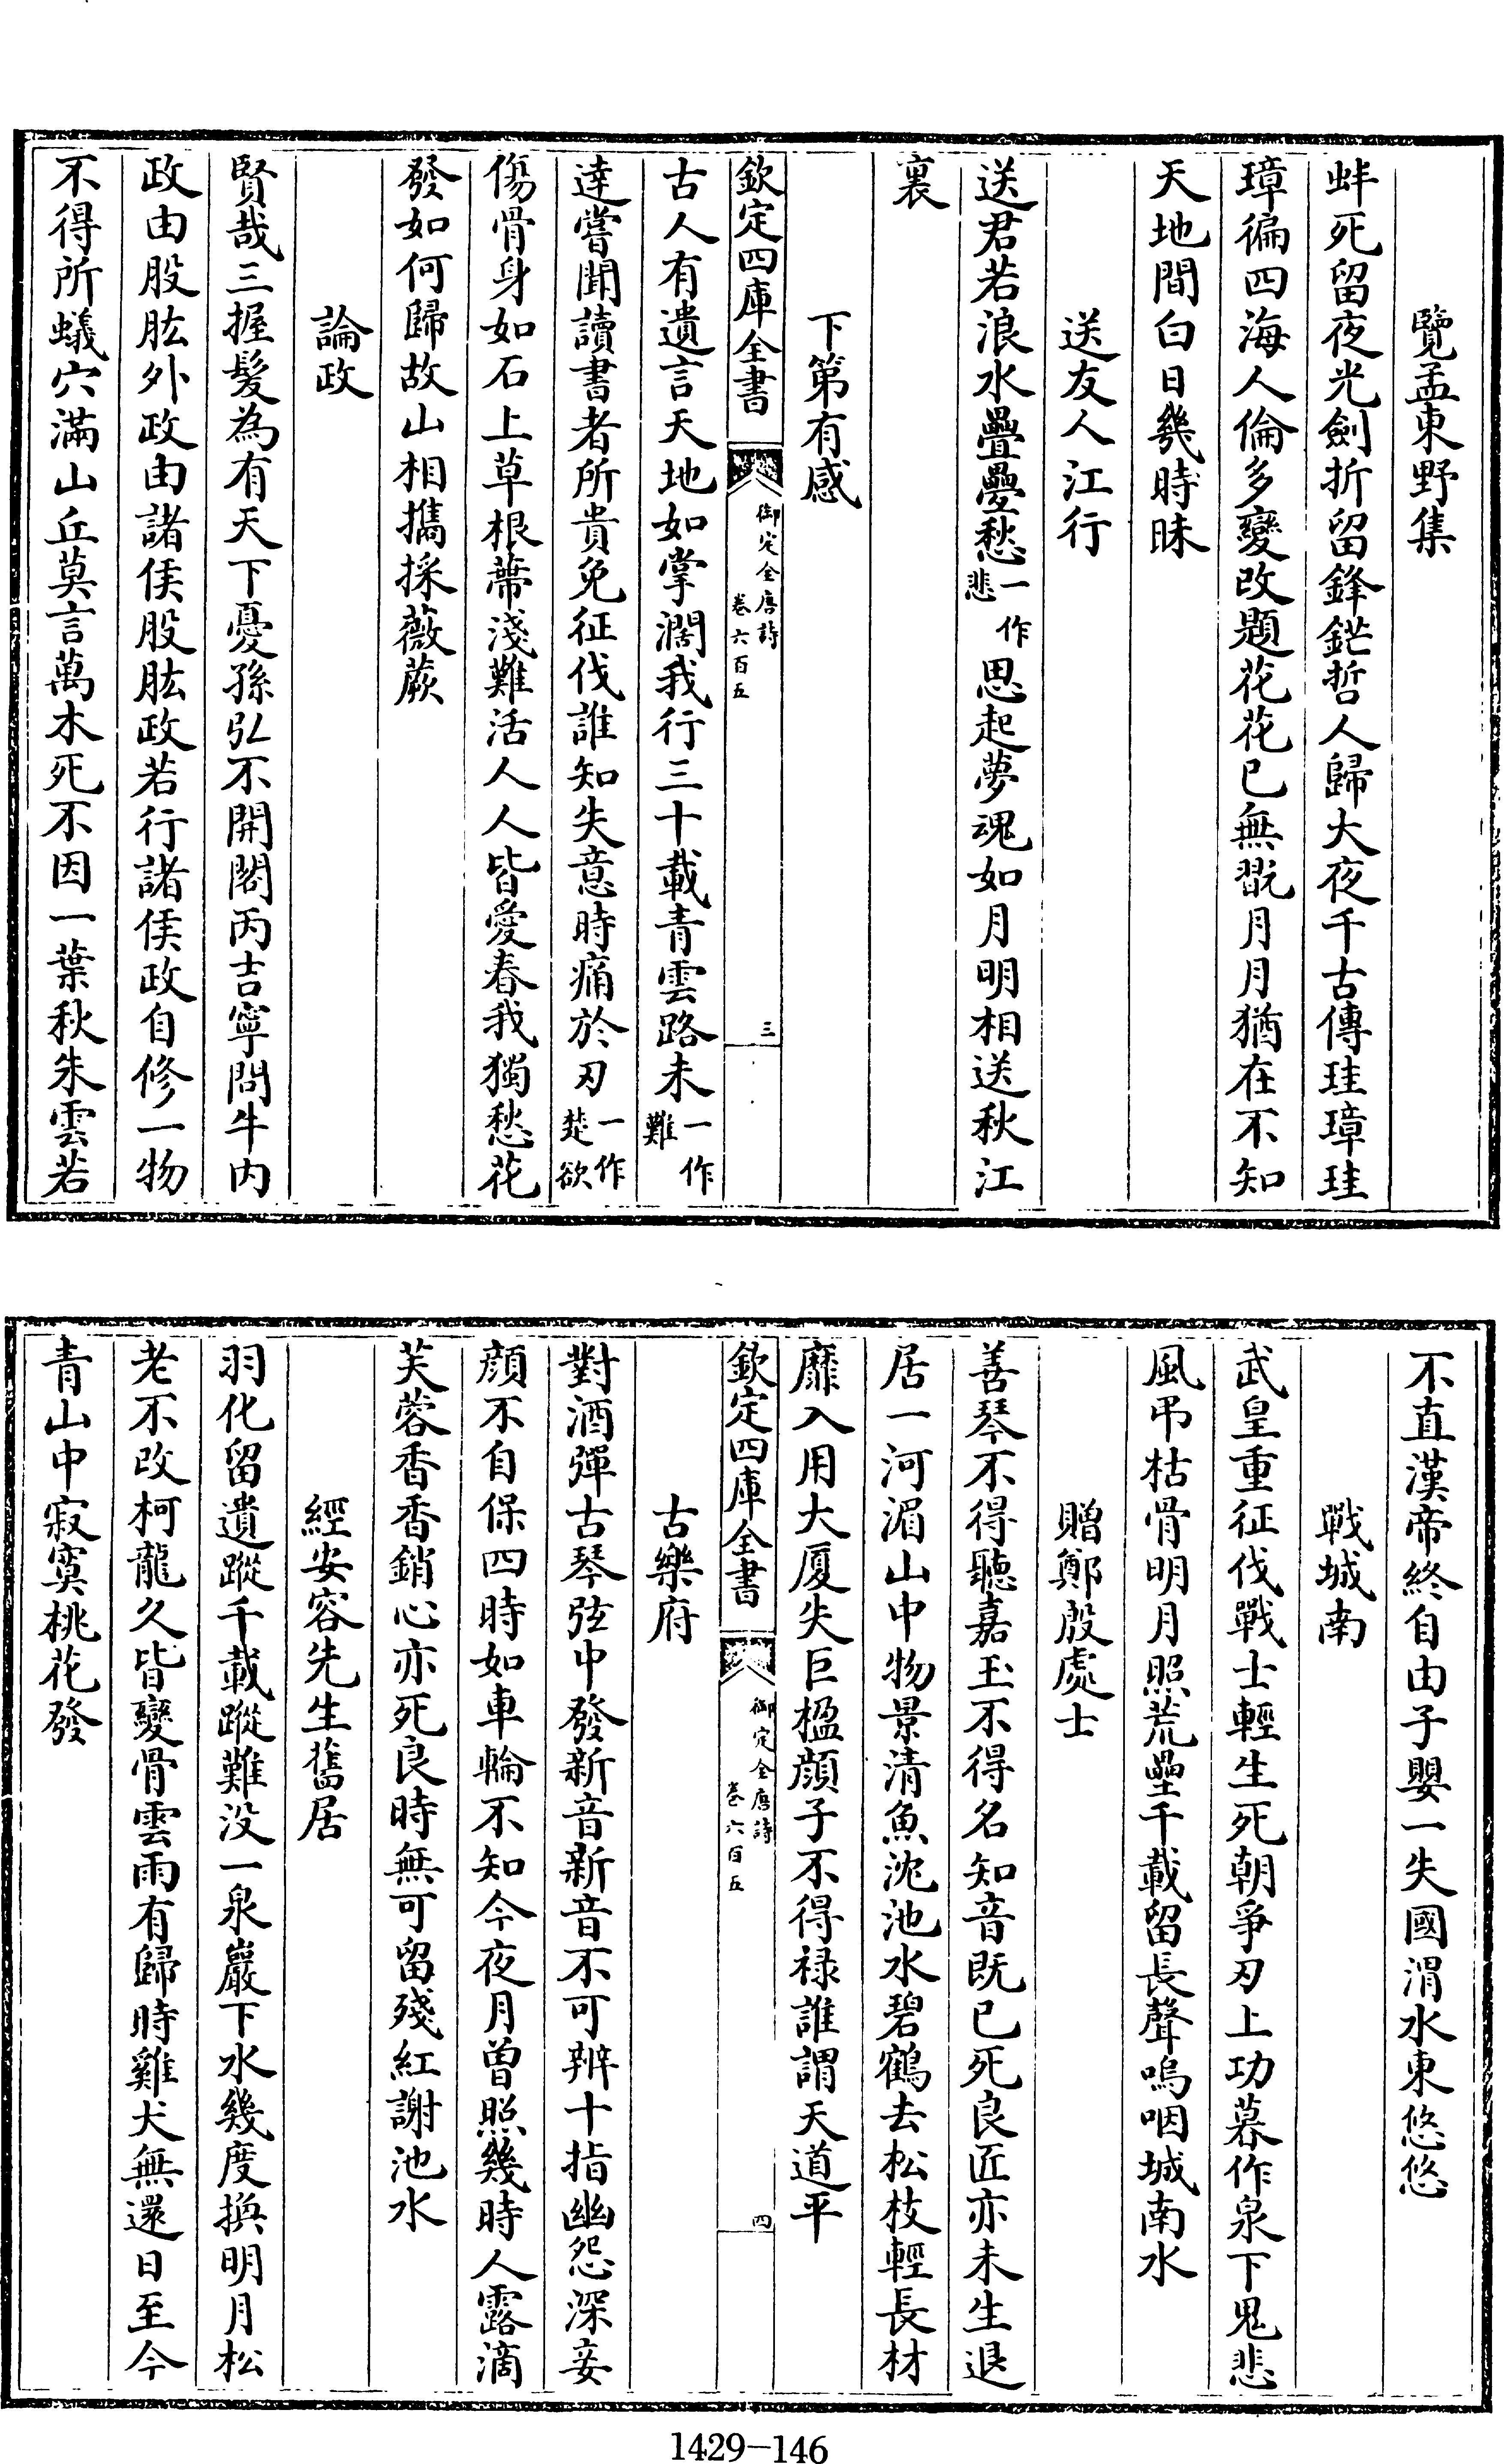 覽孟東野集
蚌死留夜光劍折留鋒鋩哲人歸大夜千古傳珪璋珪
璋徧四海人倫多變改題花花已無翫月月猶在不知
天地間白日幾時昧
送友人江行
送君若浪水疊疊愁一作悲思起夢魂如月明相送秋江
裏
下第有感
欽定四庫全書 御定全唐詩 卷六百五 三
古人有遺言天地如掌濶我行三十載青雲路未一作難
達嘗聞讀書者所貴免征伐誰知失意時痛於刃一作楚欲
傷骨身如石上草根蔕淺難活人人皆愛春我獨愁花
發如何歸故山相攜採薇蕨
論政
賢哉三握髮為有天下憂孫弘不開閣丙吉寧問牛內
政由股肱外政由諸侯股肱政若行諸侯政自修一物
不得所蟻穴滿山丘莫言萬木死不因一葉秋朱雲若
不直漢帝終自由子嬰一失國渭水東悠悠
戰城南
武皇重征伐戰士輕生死朝爭刃上功暮作泉下鬼悲
風弔枯骨明月照荒壘千載留長聲嗚咽城南水
贈鄭殷處士
善琴不得聽嘉玉不得名知音既已死良匠亦未生退
居一河湄山中物景清魚沈池水碧鶴去松枝輕長材
靡入用大厦失巨楹顏子不得祿誰謂天道平
欽定四庫全書 御定全唐詩 卷六百五 四
古樂府
對酒彈古琴弦中發新音新音不可辨十指幽怨深妾
顏不自保四時如車輪不知今夜月曾照幾時人露滴
芙蓉香香銷心亦死良時無可留殘紅謝池水
經安容先生舊居
羽化留遺蹤千載蹤難没一泉巖下水幾度換明月松
老不改柯龍久皆變骨雲雨有歸時雞犬無還日至今
青山中寂寞桃花發
1429-146